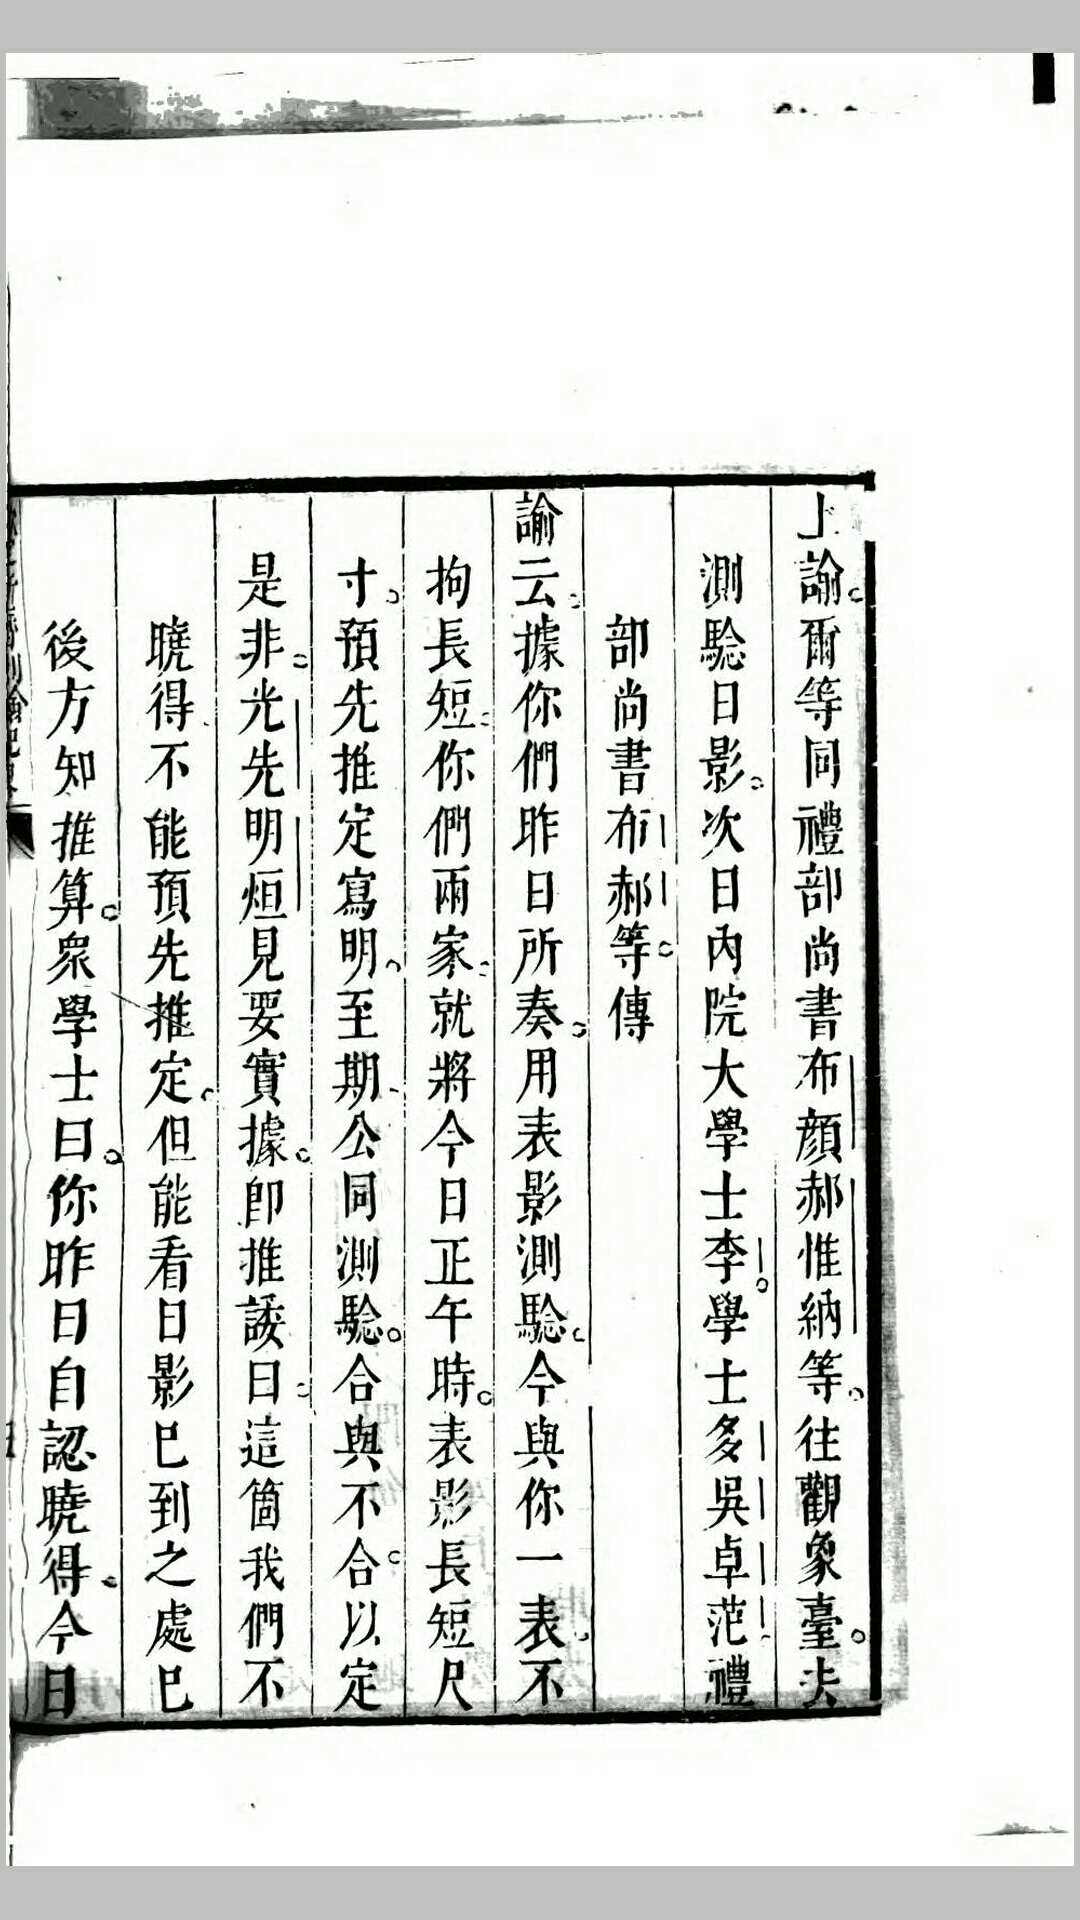 上諭爾等同禮部尚書布顏郝惟納等往觀象臺去
測驗日影次日內院大學士李學士多吳卓范禮
部尚書布郝等傳
諭云據你們昨日所奏用表影測驗今與你一表不
拘長短你們兩家就將今日正午時表影長短尺
寸預先推定寫明至期公同測驗合與不合以定
是非光先明烜見要實據即推諉曰這箇我們不
曉得不能預先推定但能看日影已到之處已
後方知推算眾學士曰你昨日自認曉得今日